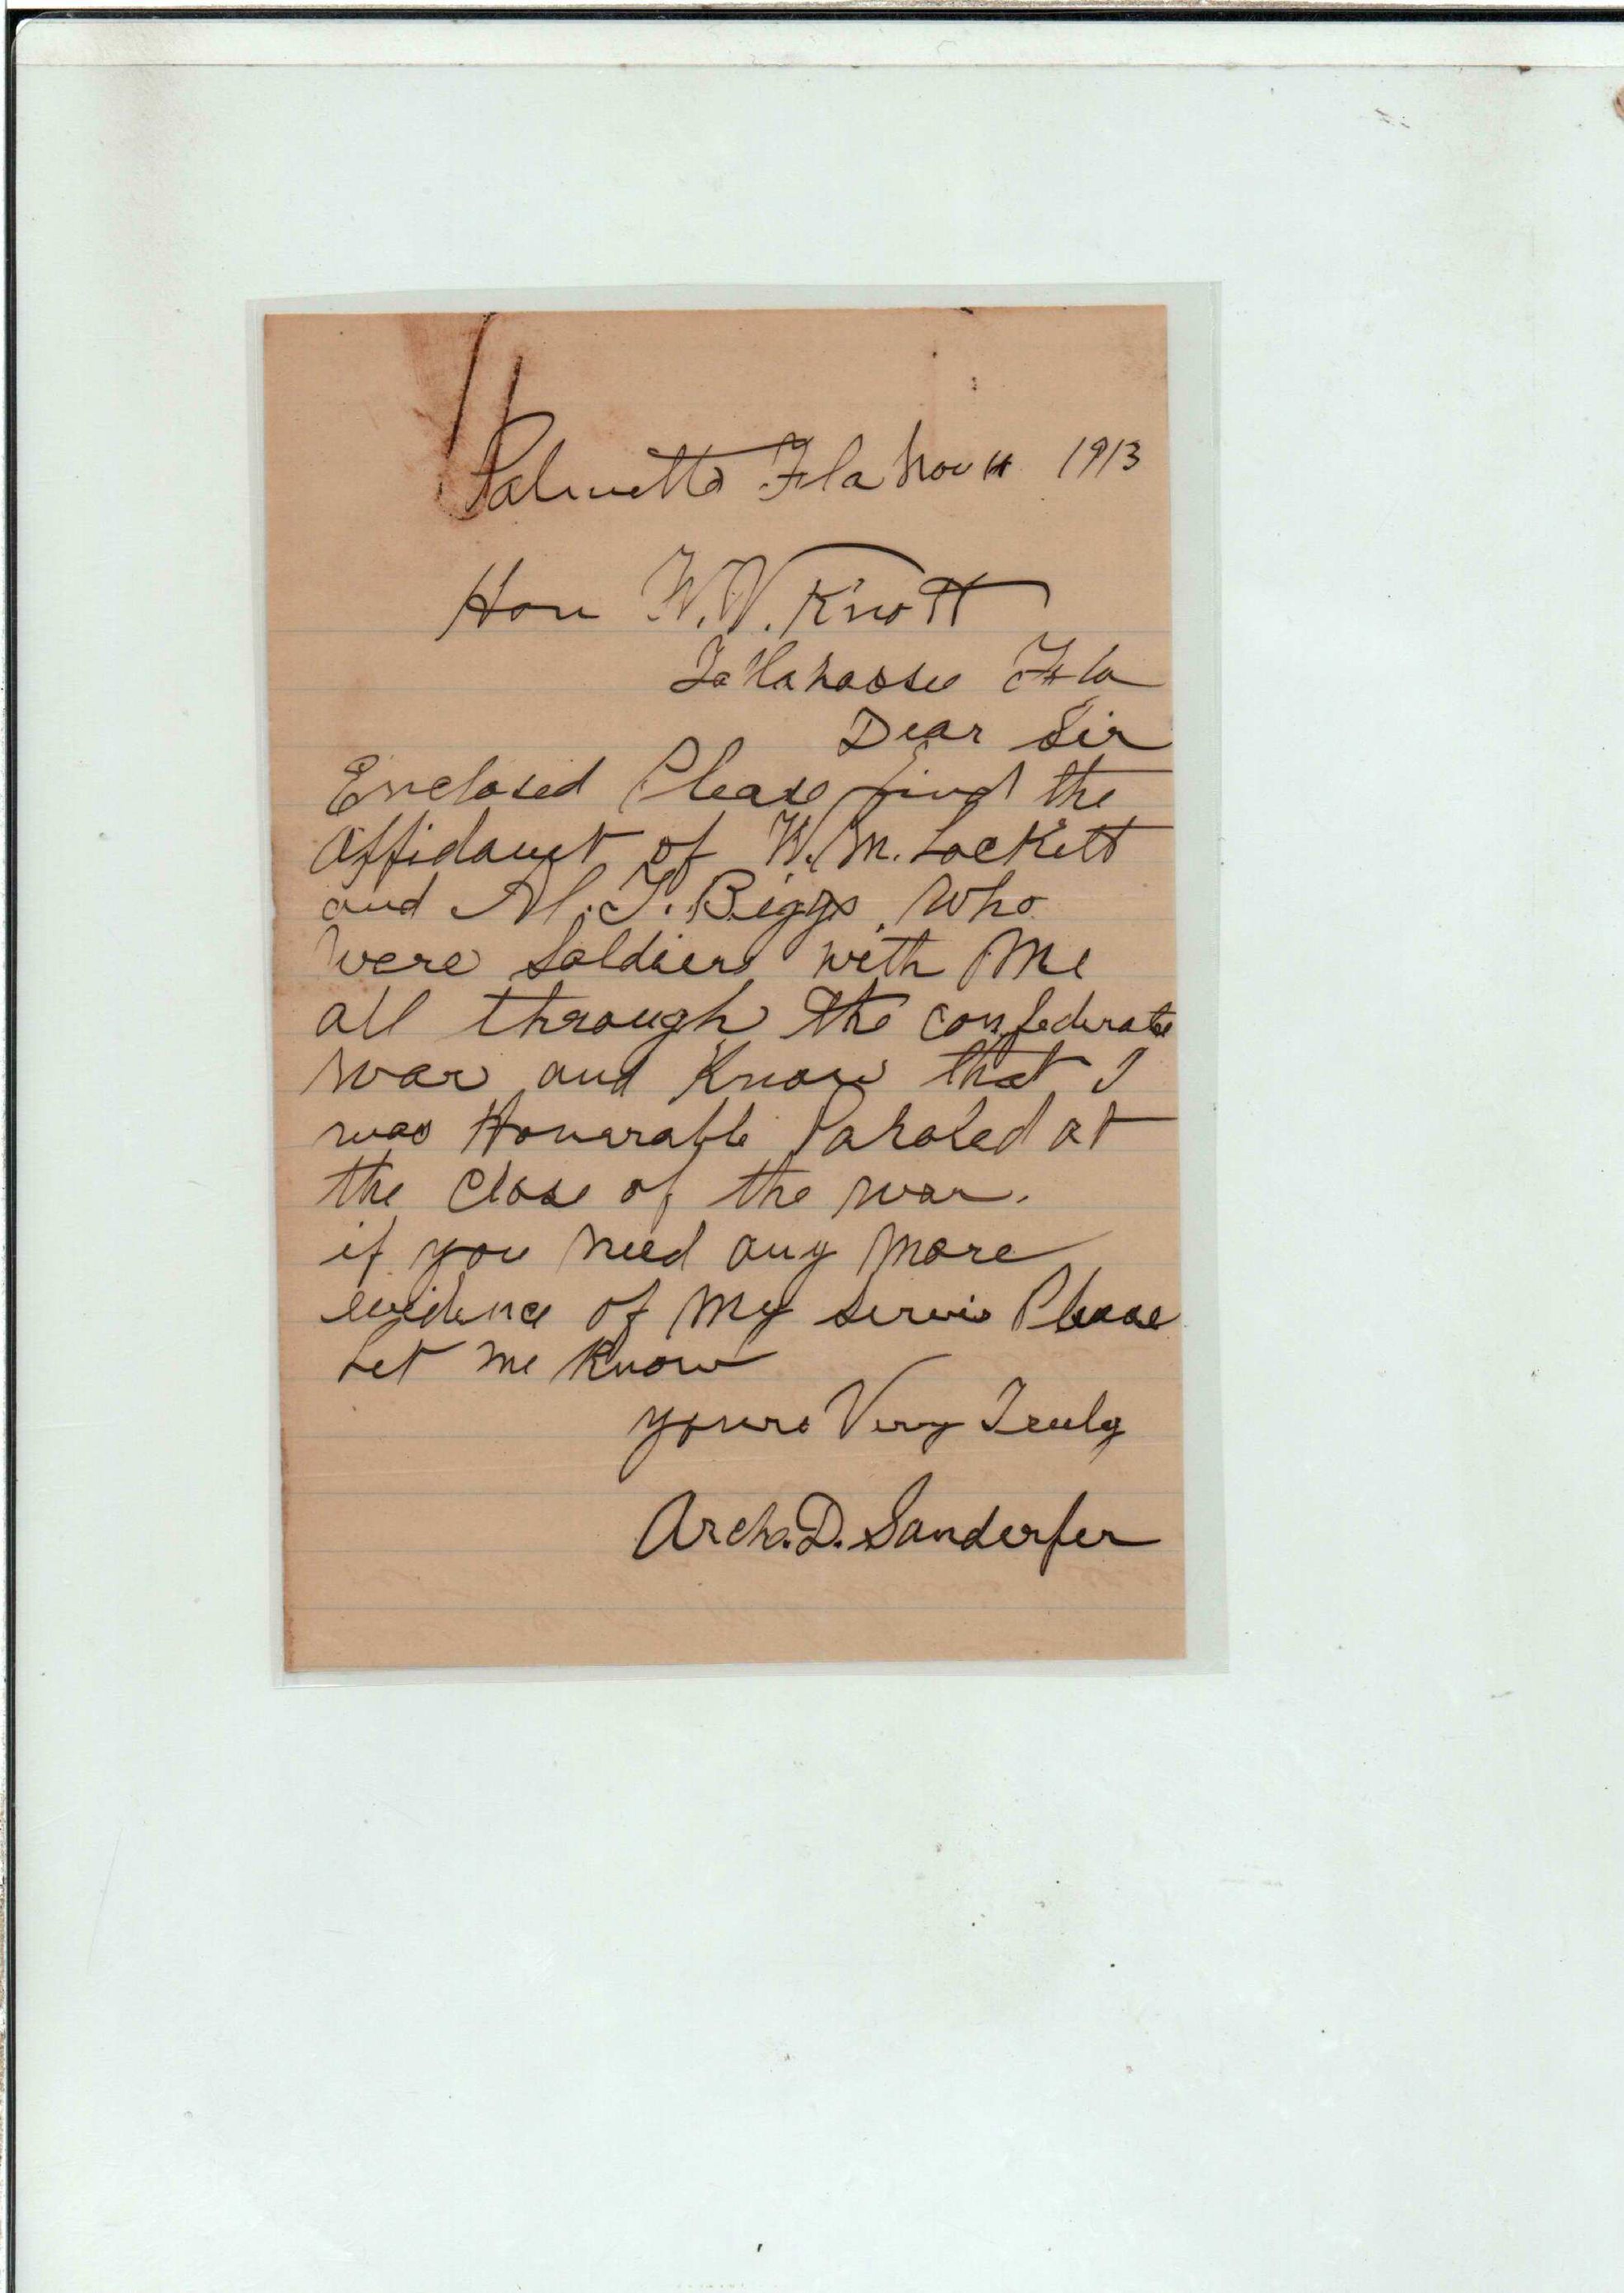 Palmetto Fla Nov 1913
Hon W.V. Knott
Tallahassee Fla
Dear Sir
Enclosed Please find the
affidavit of W.M. Lockett
and M.T. Biggs who
were soldiers with Me
all through the confederate
war and Know that I
was Honarable Paroled at
the Close of the war.
if you need any More
evidence of My servis Please
Let me Know
yours Very Truly
Arch.D. Sanderfer